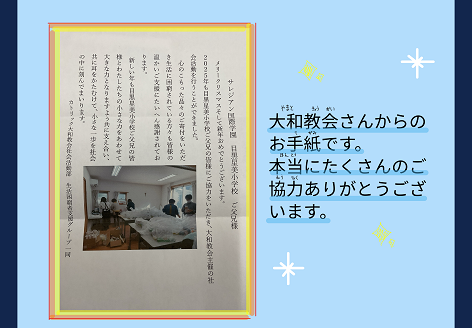 サレジアン国際学園 目黒星美小学校 ご父兄様
メリークリスマスそして新年おめでとうございます。
2025年も目黒星美小学校ご父兄の皆様にご協力をいただき、大和教会主催の社
会活動を行うことができました。
心のこもった品々のご寄付をいただ
き生活に困窮されている方々も皆様の
温かいご支援にたいへん感謝されてお
ります。
新しい年も目黒星美小学校ご父兄の皆
様とわたしたちの小さな力をあわせて
大きな力となりますよう共に支え合い、
共に耳をかたむけて、小さな一歩を社会
の中に刻んでまいります。
カトリック大和教会社会活動部 生活困窮者支援グループ一同
大和教会さんからの
お手紙です。
本当にたくさんのご
協力ありがとうござ
います。